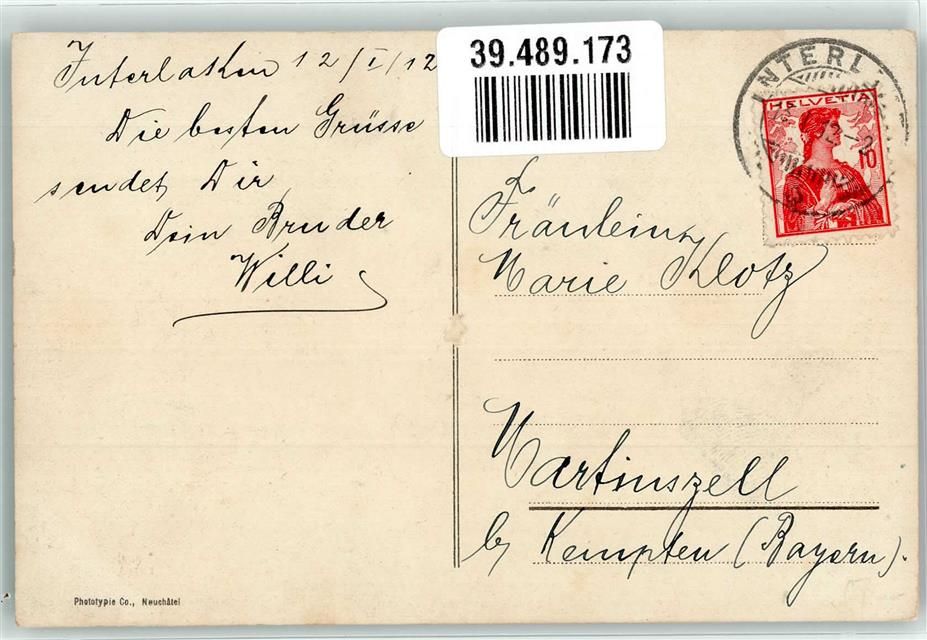 Interlaken 12/I/12
Die besten Grüsse
sendet Dir
Dein Bruder
Willi
39.489.173
INTERL
HELVETIA
10
Fräulein
Marie Klotz
Martinszell
b/ Kempten (Bayern).
Phototypie Co., Neuchâtel